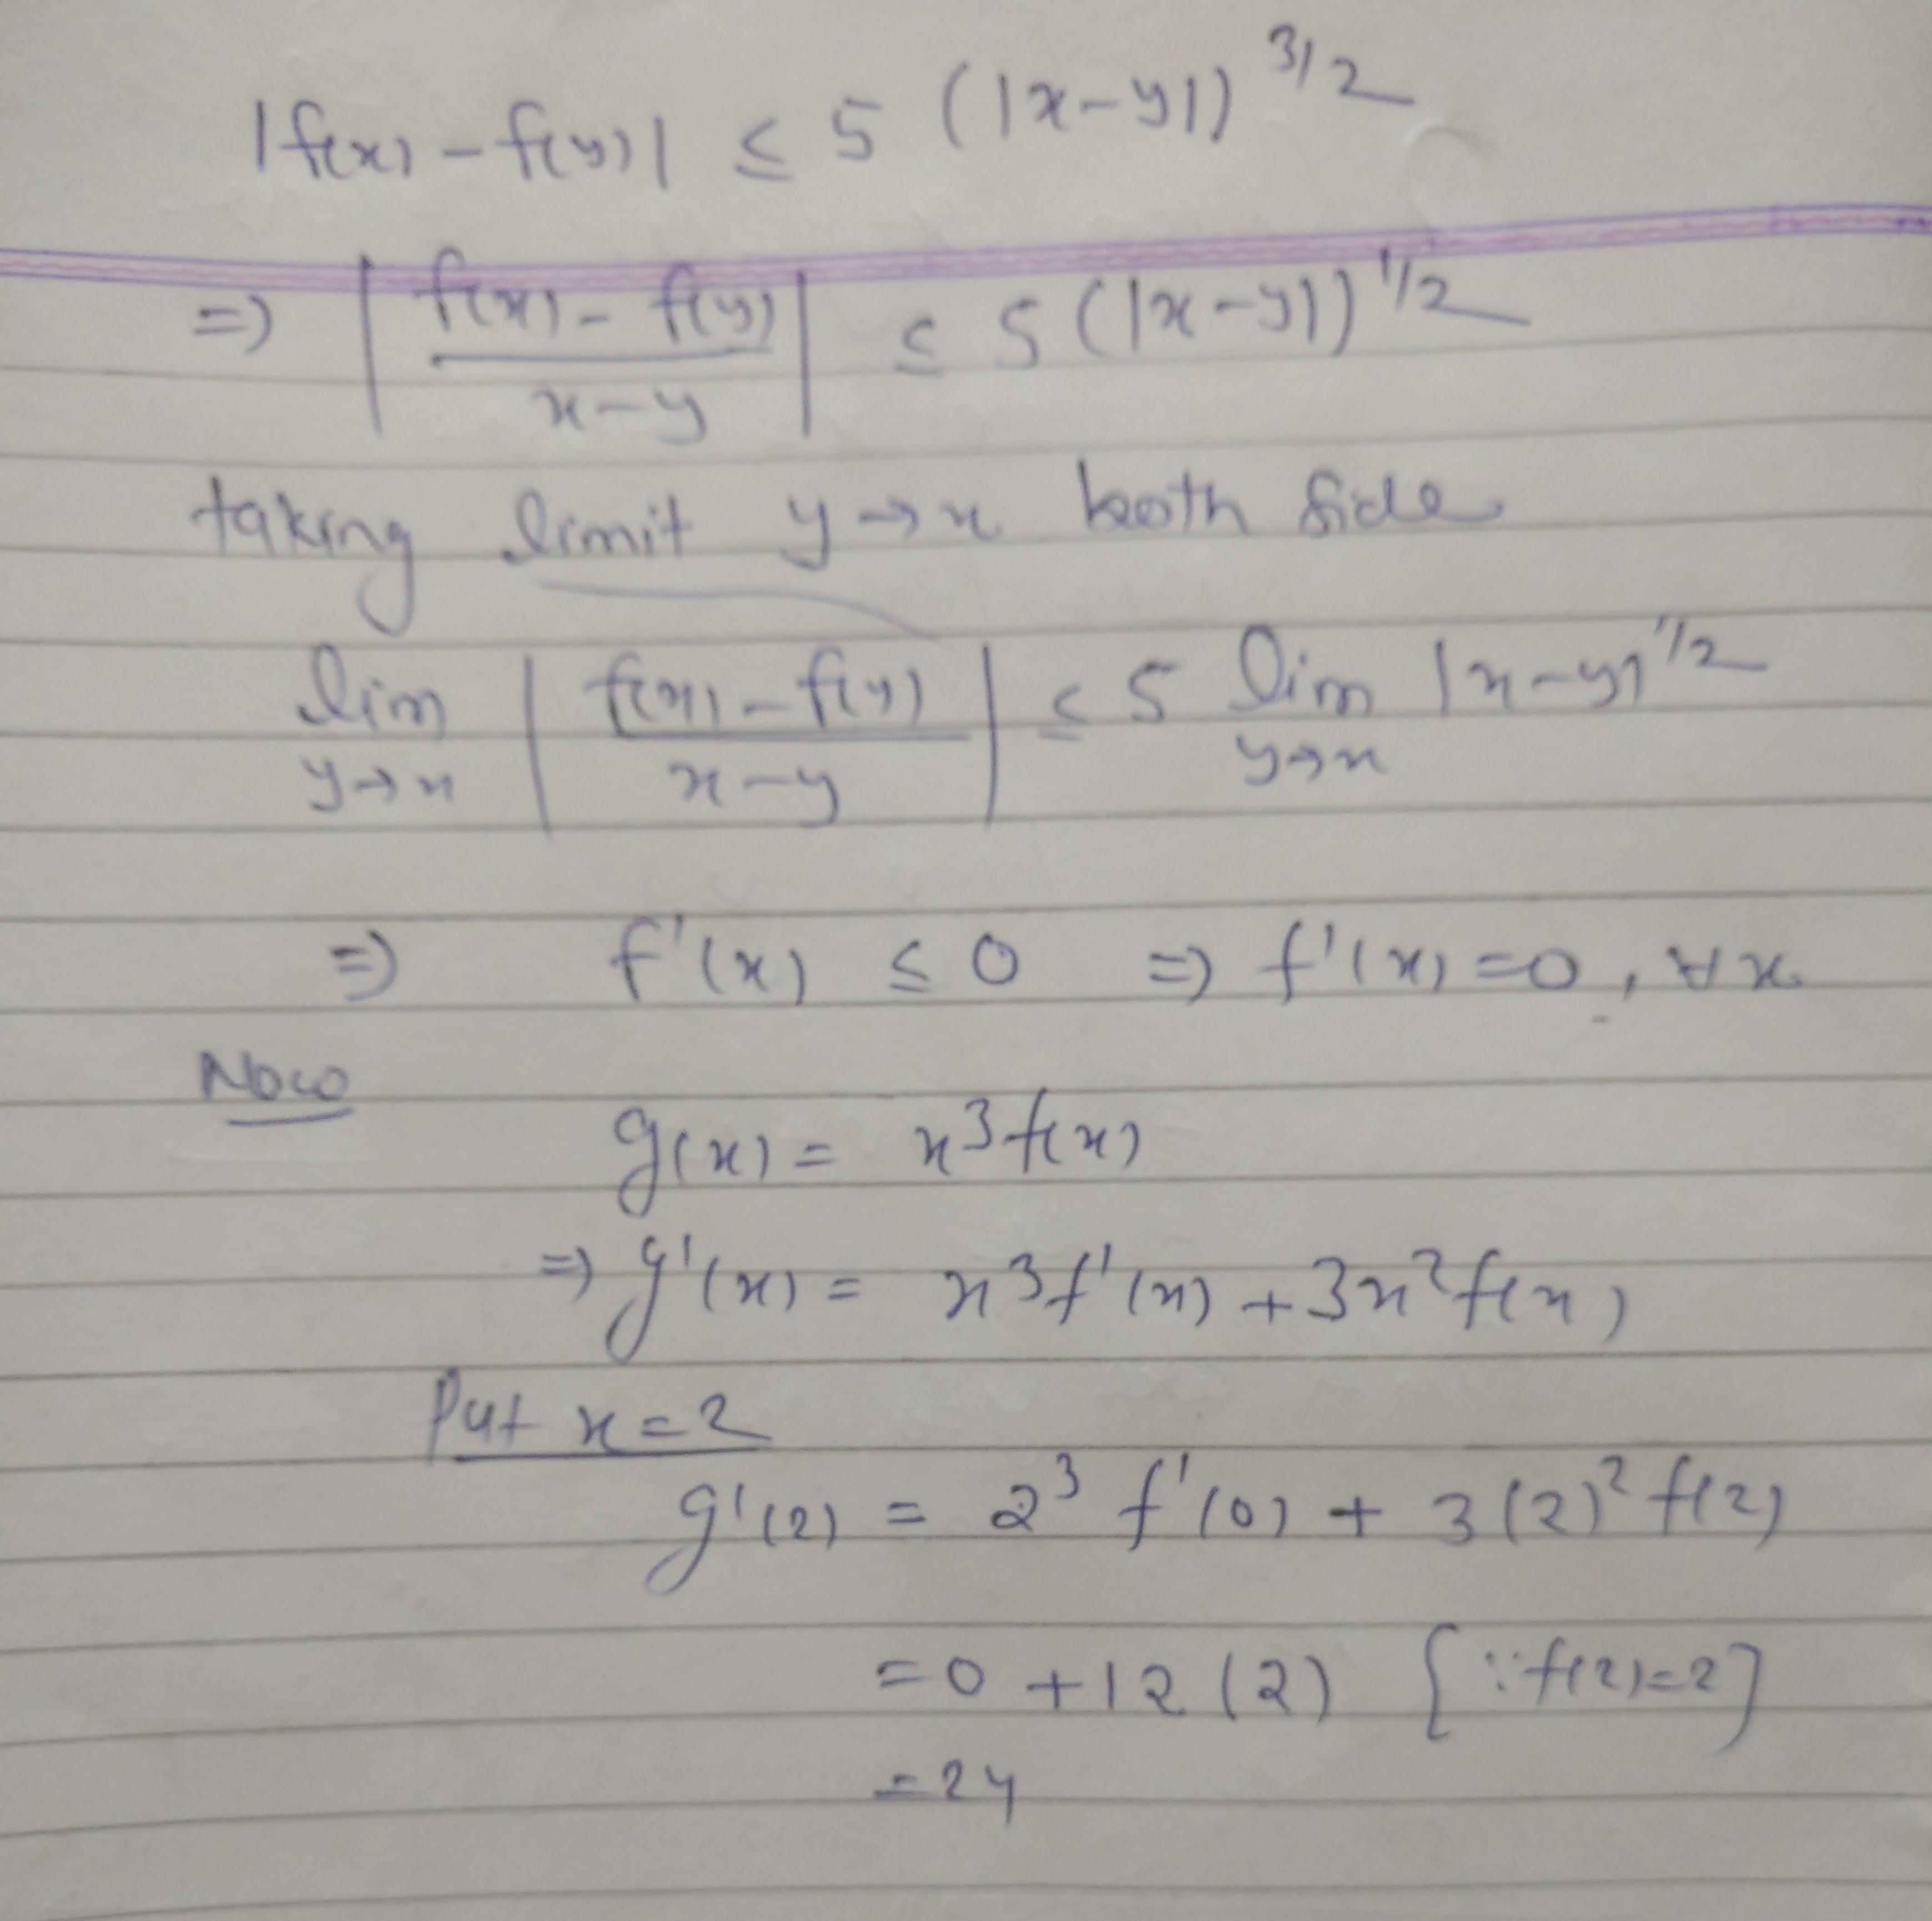 |f(x) - f(y)| ≤ 5 (|x-y|)^3/2
=> | f(x) - f(y) / x-y | ≤ 5 (|x-y|)^1/2
taking limit y→x both side
lim y→x | f(x) - f(y) / x-y | ≤ 5 lim y→x |x-y|^1/2
=> f'(x) ≤ 0 => f'(x) = 0, ∀x
Now
g(x) = x^3 f(x)
=> g'(x) = x^3 f'(x) + 3x^2 f(x)
Put x = 2
g'(2) = 2^3 f'(0) + 3(2)^2 f(2)
= 0 + 12 (2) [∵ f(2) = 2]
= 24